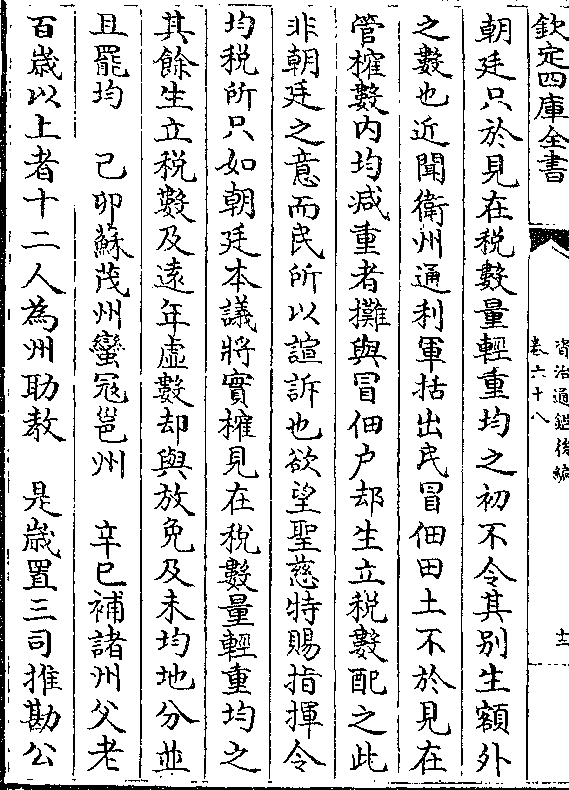 欽定四庫全書
資治通鑑後編
卷六十八
十二
朝廷只於見在税數量輕重均之初不令其别生額外
之數也近聞衛州通利軍括出民冒佃田土不於見在
管榷數内均减重者攤與冒佃户却生立税數配之此
非朝廷之意而民所以諠訴也欲望聖慈特賜指揮令
均税所只如朝廷本議將實榷見在税數量輕重均之
其餘生立税數及遠年虚數却與放免及未均地分並
且罷均　己卯蘇茂州蠻寇邕州　辛巳補諸州父老
百歳以上者十二人為州助教　是歳置三司推勘公